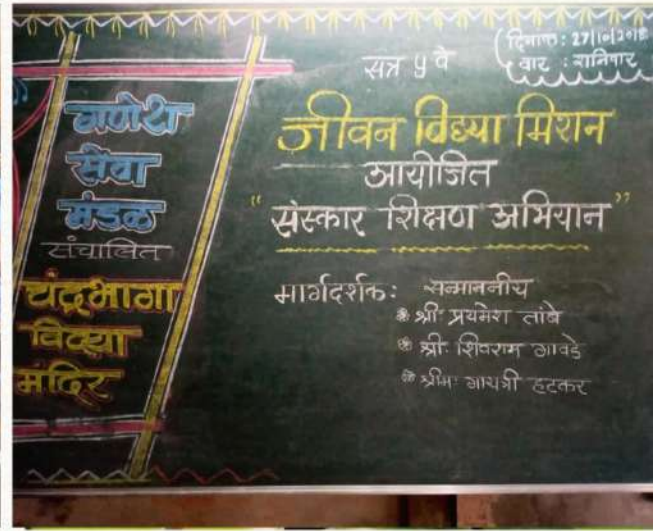 गणेश
सेवा
मंडळ
संचालित
चंद्रभागा
विद्या
मंदिर
सत्र ५ वे
दिनांक : 27/10/2018
वार : शनिवार
जीवन विद्या मिशन
आयोजित
"संस्कार शिक्षण अभियान"
मार्गदर्शक: सन्माननीय
श्री. प्रथमेश तांबे
श्री. शिवराम गावडे
श्रीम. गायत्री हटकर